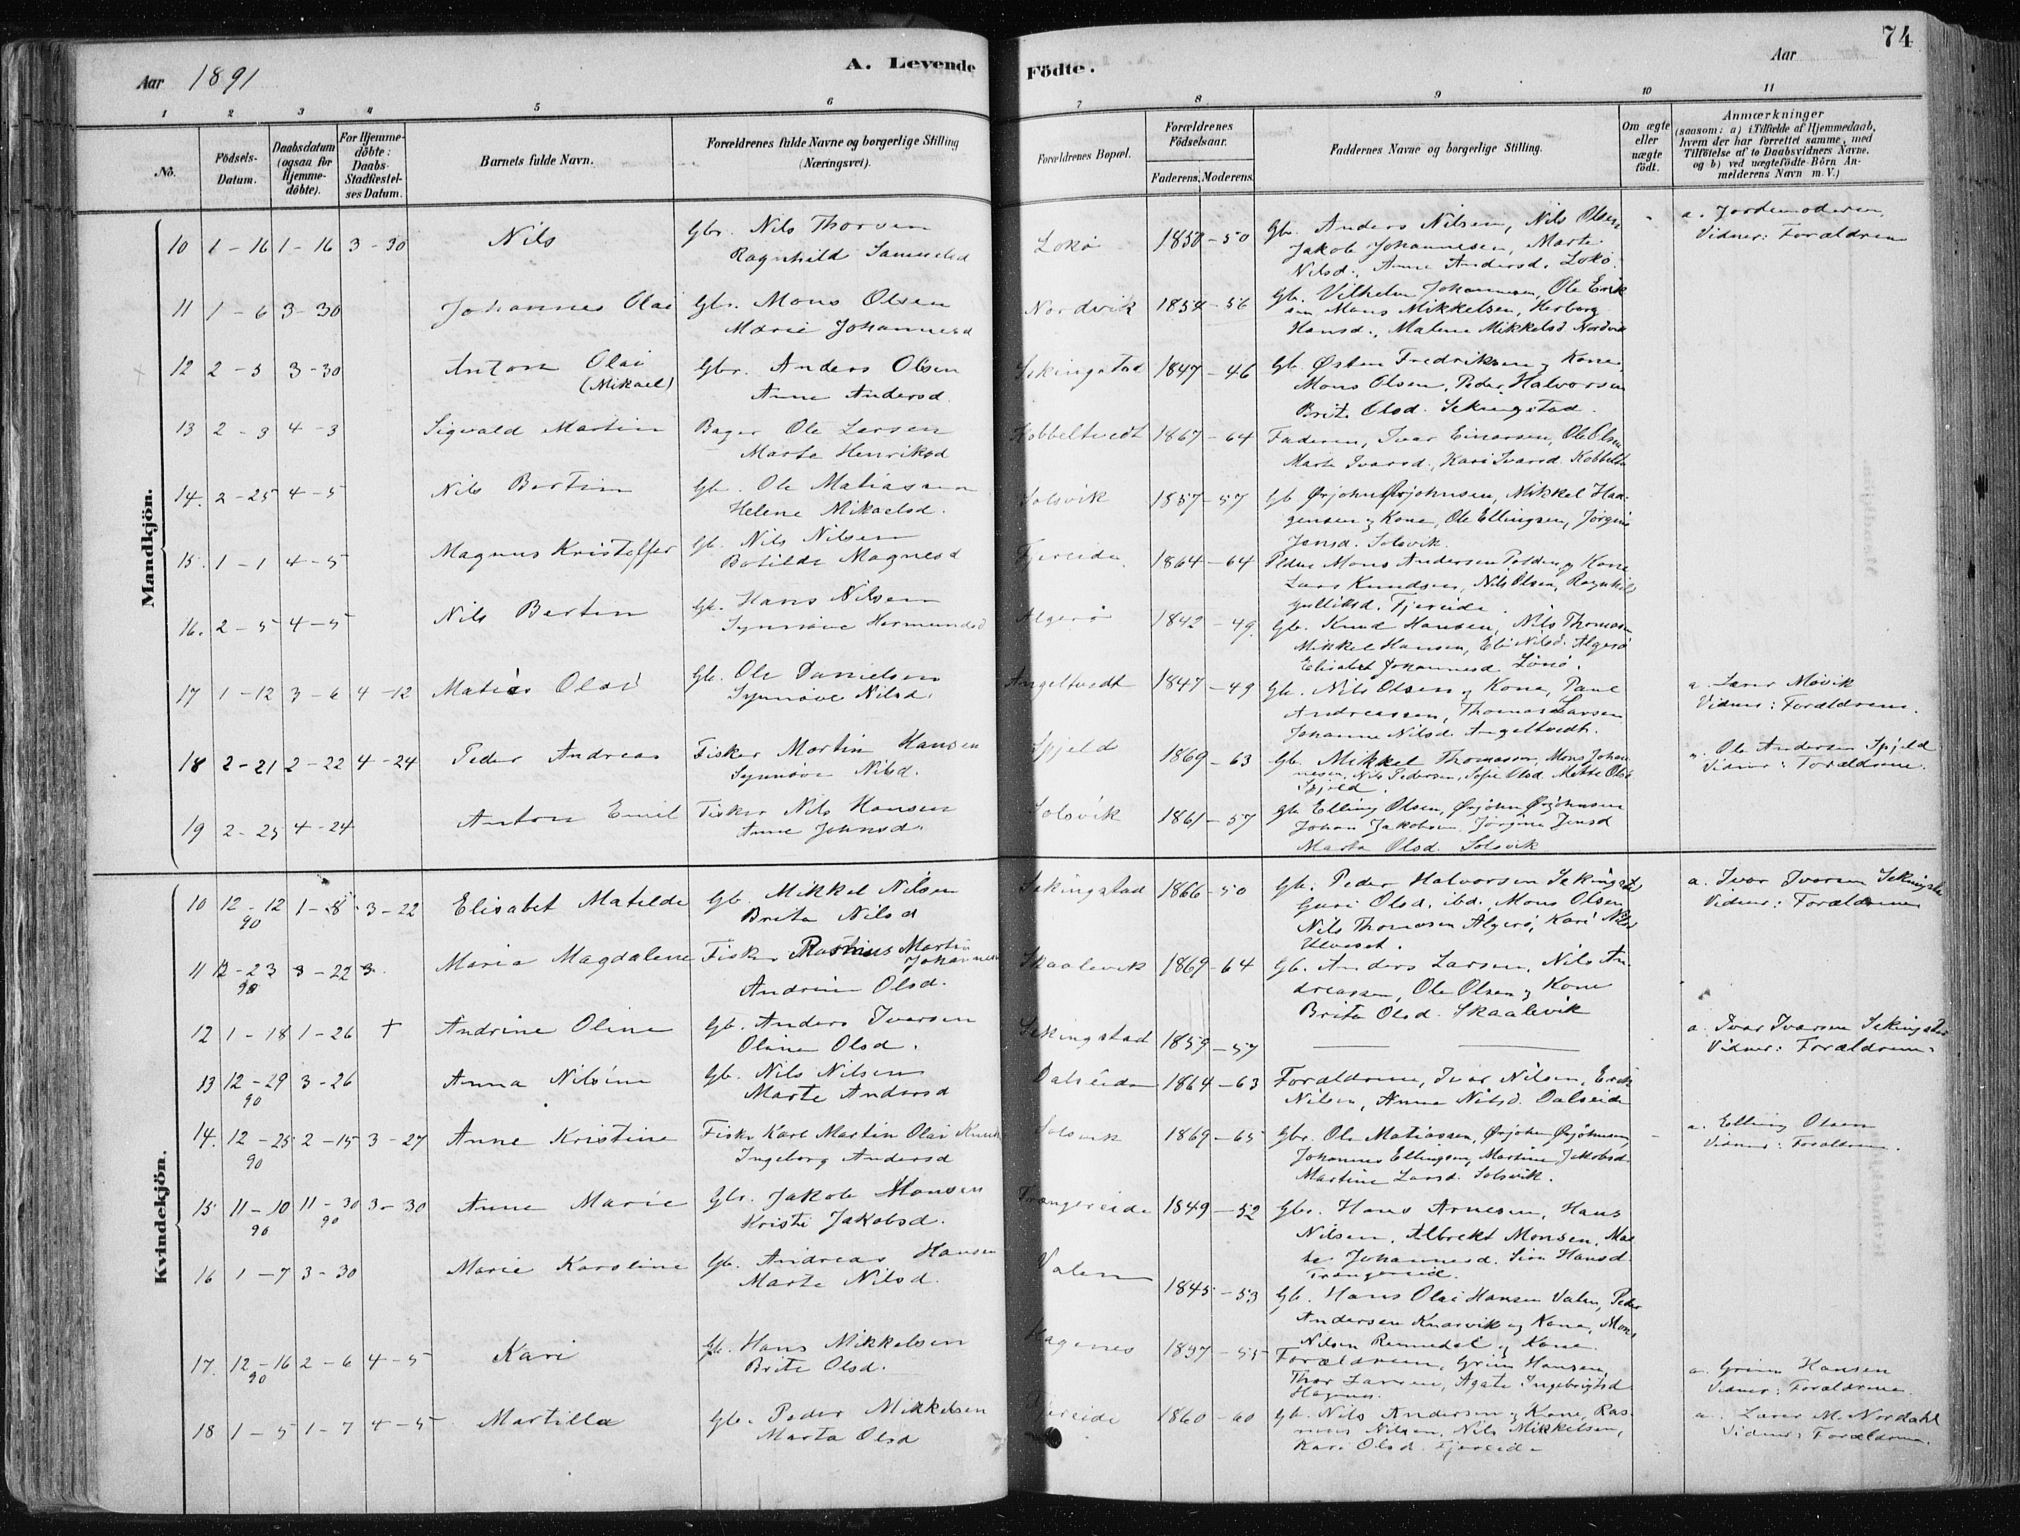 74
Aar 1891
A. Levende
Födte.
Aar
1 2 3 4 5 6 7 8 9 10 11
No.
Födsels-Datum.
Daabsdatum (ogsaa for Hjemme-döbte).
For Hjemme-döbte: Daabs-Stadfæstelses Datum.
Barnets fulde Navn.
Forældrenes fulde Navne og borgerlige Stilling (Næringsvei).
Forældrenes Bopæl.
Forældrenes Födselsaar.
Faderens. Moderens.
Faddernes Navne og borgerlige Stilling.
Om ægte eller uægte födt.
Anmærkninger
(saasom: a) i Tilfælde af Hjemmedaab,
hvem der har forrettet samme, med
Tilföielse af to Daabsvidners Navne,
og b) ved uægtefödte Börn An-
melderens Navn m. V.)
Mandkjön.
10 1-16 1-16 3-30 Nils
Gbr. Nils Thorsen
Ragnhild Samuelsd
Lokö 1850-50
Gb. Anders Nilsen, Nils Olsen
Jakob Johannesen, Marte
Nilsd., Anne Andersd. Lokö.
a. Jordemoderen,
Vidner: Forældrene
11 1-6 3-30 Johannes Olai
Gbr. Mons Olsen
Marie Johannesd
Nordvik 1854-56
Gb. Vilhelm Johannesen, Ole Erik
sen Mons Mikkelsen, Herborg
Hansd., Malene Mikkelsd Nordvik
12 2-5 3-30 Anton Olai
(Mikael)
Gbr. Anders Olsen
Anne Andersd.
Sekingstad 1847-46
Gb. Østen Fredriksen og Kone
Mons Olsen, Peder Halvorsen
Brite Olsd. Sekingstad.
13 2-3 4-3 Sigvald Martin
Bager Ole Larsen
Marta Henriksd
Kobbeltvedt 1867-64
Faderen, Ivar Einarsen, Ole Olsen
Marte Ivarsd., Kari Ivarsd Kobbeltv
14. 2-25 4-5 Nils Bertin
Gb. Ole Matiassen
Helene Mikaelsd.
Solsvik 1857-57
Gb Ørjohn Ørjohnsen, Mikkel Haa-
gensen og Kone, Ole Ellingsen, Jørgine
Jensd. Solsvik.
15. 1-1 4-5 Magnus Kristoffer
Gb. Nils Nilsen
Botilde Magnesd
Fjereide 1864-64
Mons Andersen Polden og Kone
Lars Knudsen, Nils Olsen, Ragnhild
Gulliksd. Fjereide.
16. 2-5 4-5 Nils Bertin
Gb. Hans Nilsen
Synnöve Hermundsd
Algerö 1842-49.
Gb. Knud Hansen, Nils Thomassen
Mikkel Hansen, Eli Nilsd. Algerö
Elisabet Johannesd Lönö.
17 1-12 3-6 4-12 Matias Olai
Gb. Ole Danielsen
Synnöve Nilsd.
Angeltvedt 1847-49
Gb. Nils Olsen og Kone, Paul
Andreassen, Thomas Larsen
Johanne Nilsd. Angeltvedt.
a. Lærer Mövik
Vidner: Forældrene.
18 2-21 2-22 4-24 Peder Andreas
Fisker Martin Hansen
Synnöve Nilsd.
Spjeld 1869-63
Gb. Mikkel Thomassen, Mons Johan-
nesen, Nils Pedersen, Sofie Olsd. Mette Olsd
Spjeld.
" Ole Andersen Spjeld
Vidner: Forældrene.
19 2-25 4-24 Anton Emil
Fisker Nils Hansen
Anne Johnsd.
Solsvik 1861-57
Gb Elling Olsen, Ørjohn Ørjohnsen
Johan Jakobsen, Jørgine Jensd
Marta Olsd. Solsvik
Kvindekjön.
10 12-12 90 1-8 3-22 Elisabet Matilde
Gb. Mikkel Nilsen
Brita Nilsd
Sekingstad 1866-50
Gb. Peder Halvorsen Sekingstd
Guri Olsd. ibd. Mons Olsen
Nils Thomasen Algerö, Kari Nilsd
Ulveset.
a. Ivar Ivarsen Sekingsta
Vidner: Forældrene
11 12-23 90 3-22 3. Maria Magdalene
Fisker Rasmus Martin
Johannesen
Andrine Olsd.
Skaalevik 1869-64
Gb. Anders Larsen, Nils An-
dreassen, Ole Olsen og Kone
Brita Olsd. Skaalevik
12 1-18 1-26 + Andrine Oline
Gb. Anders Ivarsen
Oline Olsd.
Sekingstad 1859-57
a. Ivar Ivarsen Sekingstad
Vidner: Forældrene.
13 12-29 90 3-26 Anna Nilsine
Gb. Nils Nilsen
Marte Andersd
Dalseide 1864-63
Forældrene, Ivar Nilsen, Erik
Nilsen, Anna Nilsd. Dalseide
14. 12-25 90 2-15 3-27 Anne Kristine
Fisker Karl Martin Olai Knud
Ingeborg Andersd
Solsvik 1869-65
Gbr. Ole Matiassen, Ørjohn Ørjohnsen
Johannes Ellingsen, Martine Jakobsd
Martine Larsd. Solsvik.
a. Elling Olsen
Vidner: Forældrene.
15 11-10 90 11-30 90 3-30 Anne Marie
Gbr. Jakob Monsen
Kristi Jakobsd.
Trængereide 1849-52
Gbr. Hans Arnesen, Hans
Nilsen, Albrekt Monsen, Mar-
te Johannesd. Siri Hansd.
Trængereid.
16 1-7 3-30 Marie Karoline
Gb. Andreas Hansen
Marte Nilsd.
Valen 1845-53
Gb. Hans Olai Hansen Valen, Peder
Andersen Knarvik og Kone, Mons
Nilsen Remmedal og Kone.
17. 12-16 90 2-6 4-5 Kari
Gb. Hans Mikkelsen
Brite Olsd.
Hagenes 1857-55
Forældrene, Grim Hansen,
Thor Larsen, Agate Ingebrigtsd
Hagenes.
a. Grim Hansen
Vidner: Forældrene.
18 1-5 1-7 4-5 Martilla
Gb. Peder Mikkelsen
Marta Olsd
Fjereide 1860-60
Gb. Nils Andersen og Kone, Ras-
mus Nilsen, Nils Mikkelsen,
Kari Olsd. Fjereide
a. Lærer M. Nordahl
Vidner: Forældrene.